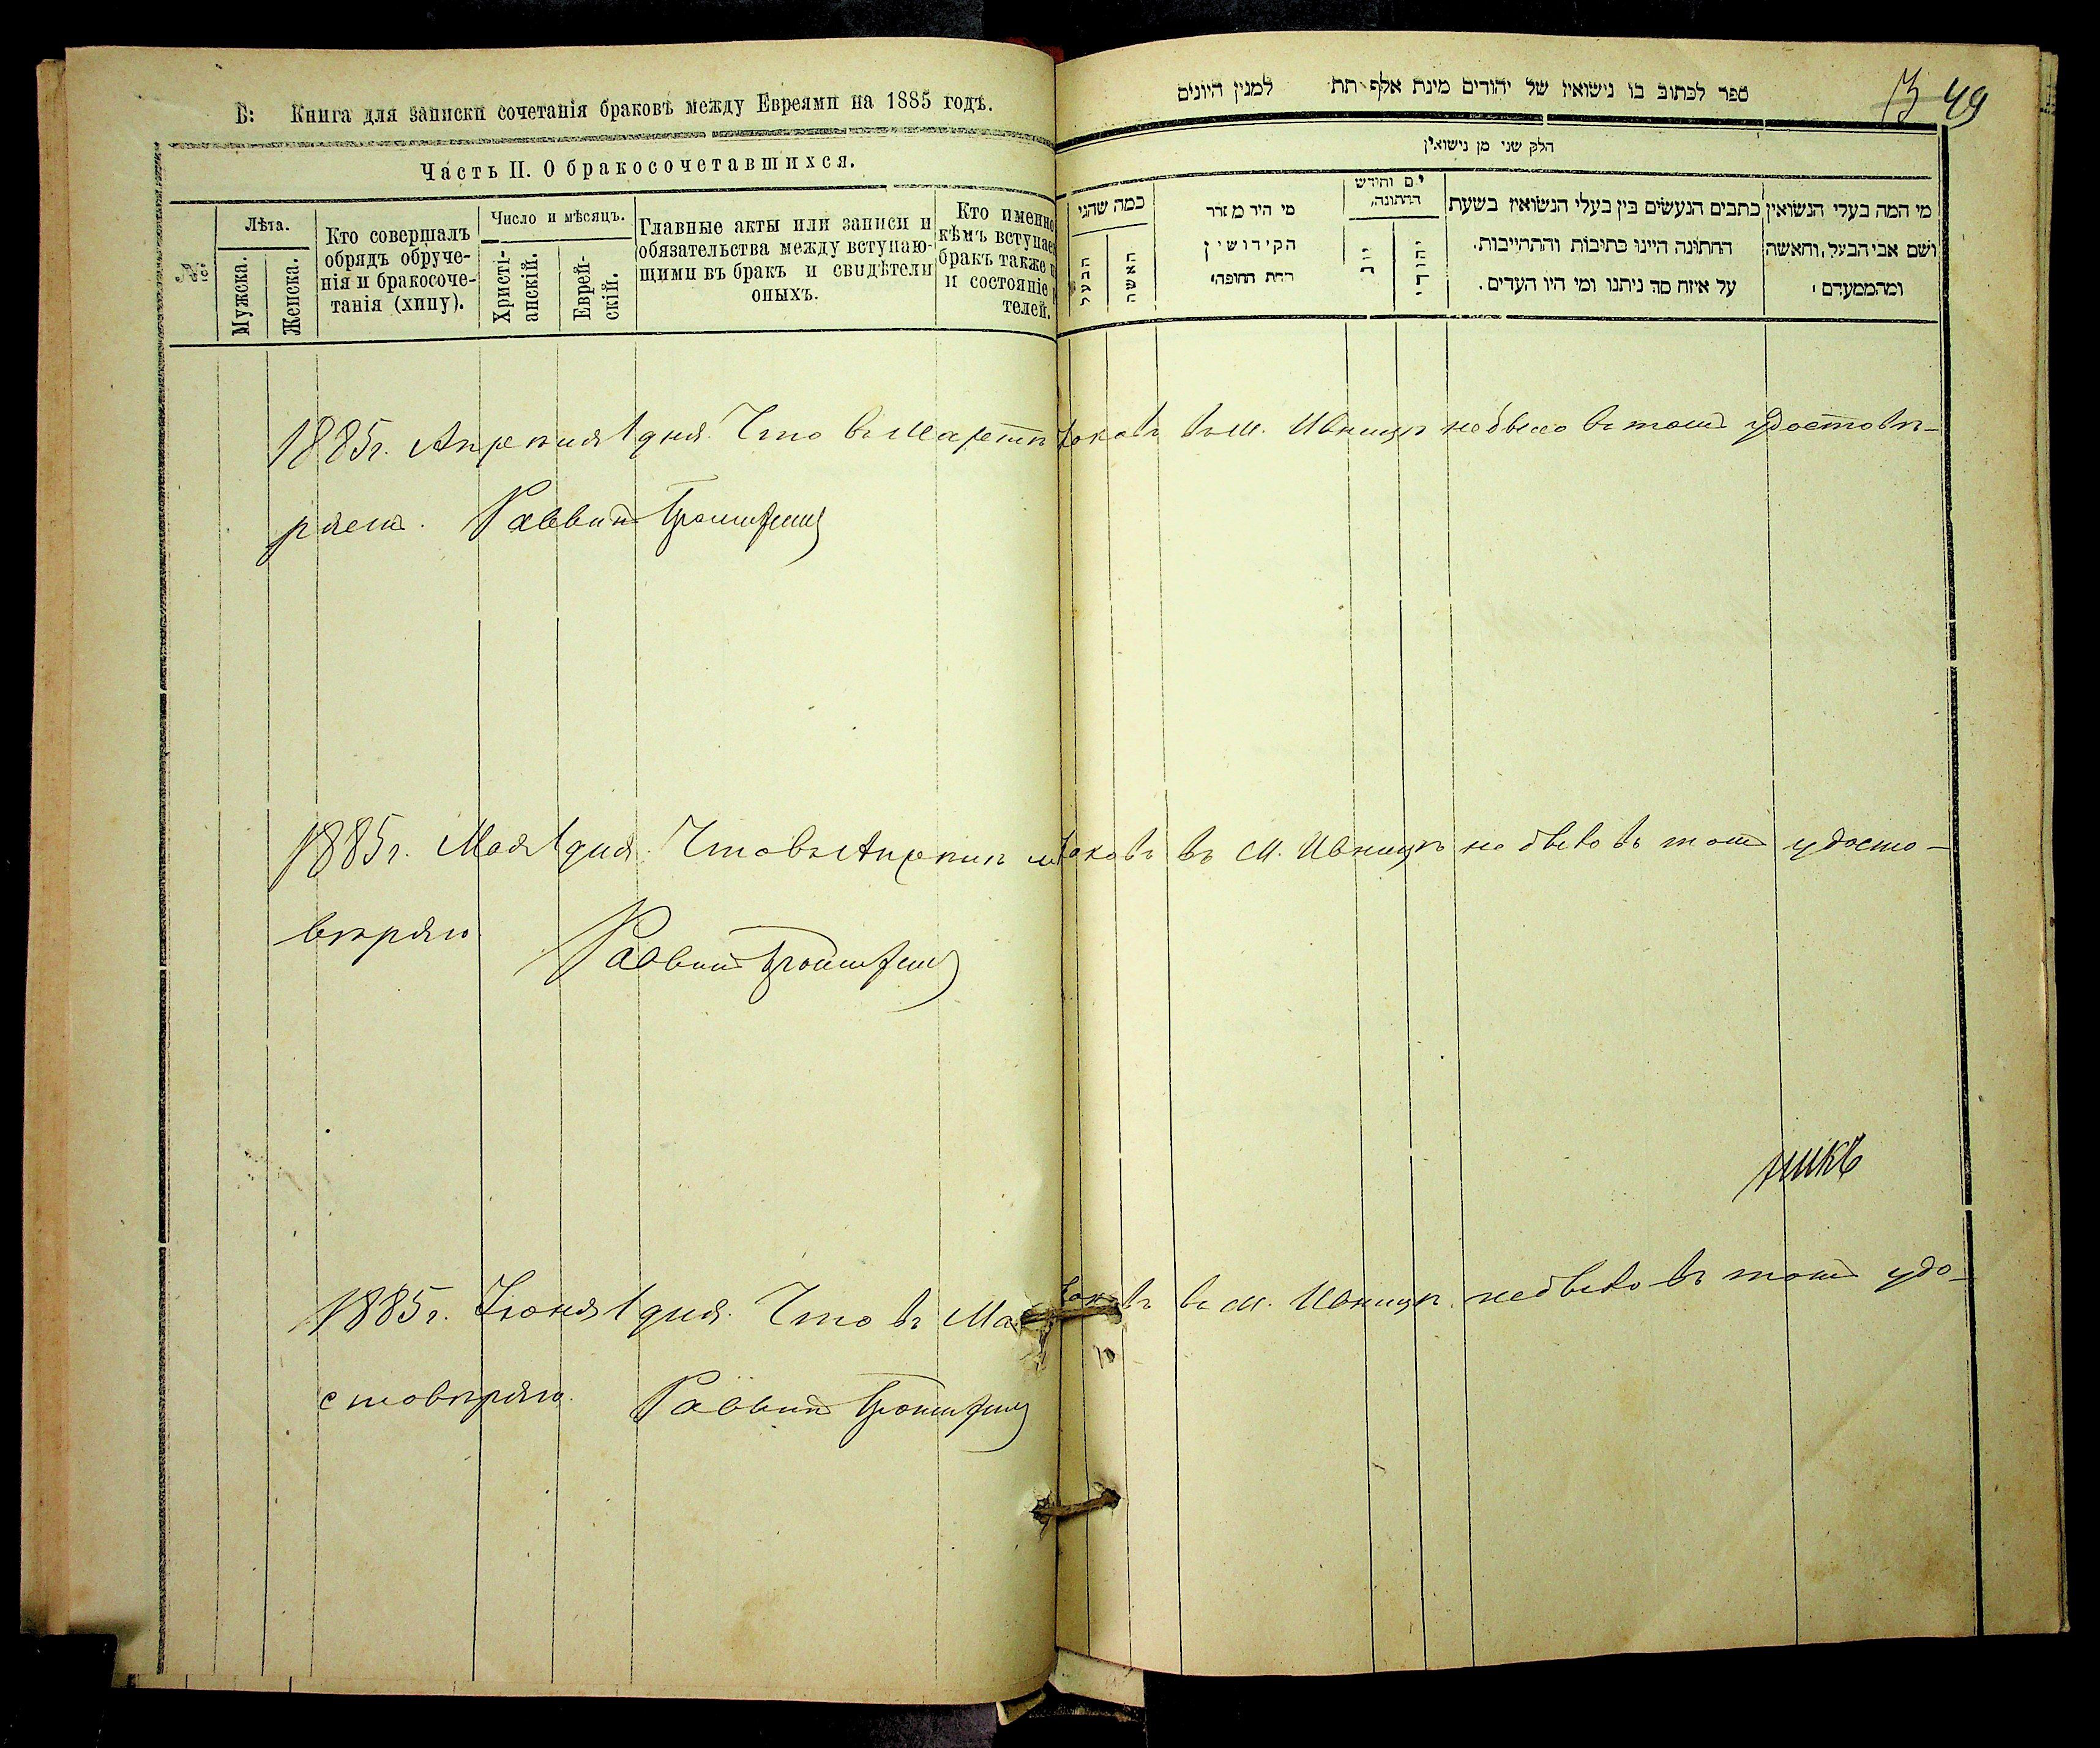 Б: Книга для записки сочетанія браковъ между Евреями на 1885 годъ.
Часть II. О бракосочетавшихся.
№
Лѣта.
Мужска.
Женска.
Кто совершалъ
обрядъ обруче-
нія и бракосоче-
танія (хипу).
Число и мѣсяцъ.
Христі-
анскій.
Еврей-
скій.
Главные акты или записи и
обязательства между вступаю-
щими въ бракъ и свидѣтели
оныхъ.
Кто именно
кѣмъ вступае
бракъ также
и состояніе
телей.
ספר לכתוב בו נישואין של יהודים מינת אלף תת למנין היונים
49
חלק שני מן נישואין
כמה שהגי
הבעל
האשה
מי היה מסדר
הקידושין
תחת החופה
יום וחידש
החתונה
יוני
יהודי
כתבים הנעשים בין בעלי הנשואין בשעת
החתונה היינו כתיבות והתחייבות.
על איזח סך ניתנו ומי היו העדים.
מי המה בעלי הנשואין
ושם אבי הבעל, והאשה
ומהממעדם
1885г. Апреля 1 дня. Что въ Мартѣ браковъ въ М. Ивницѣ небыло въ томъ удостовѣ-
ряетъ. Раввинъ
1885г. Мая 1 дня. Что въ Апрелѣ браковъ въ М. Ивницѣ небыло въ томъ удосто-
вѣряю Раввинъ
1885г. Іюня 1 дня. Что въ Ма браковъ въ М. Ивницѣ небыло въ томъ удо-
стовѣряю. Раввинъ